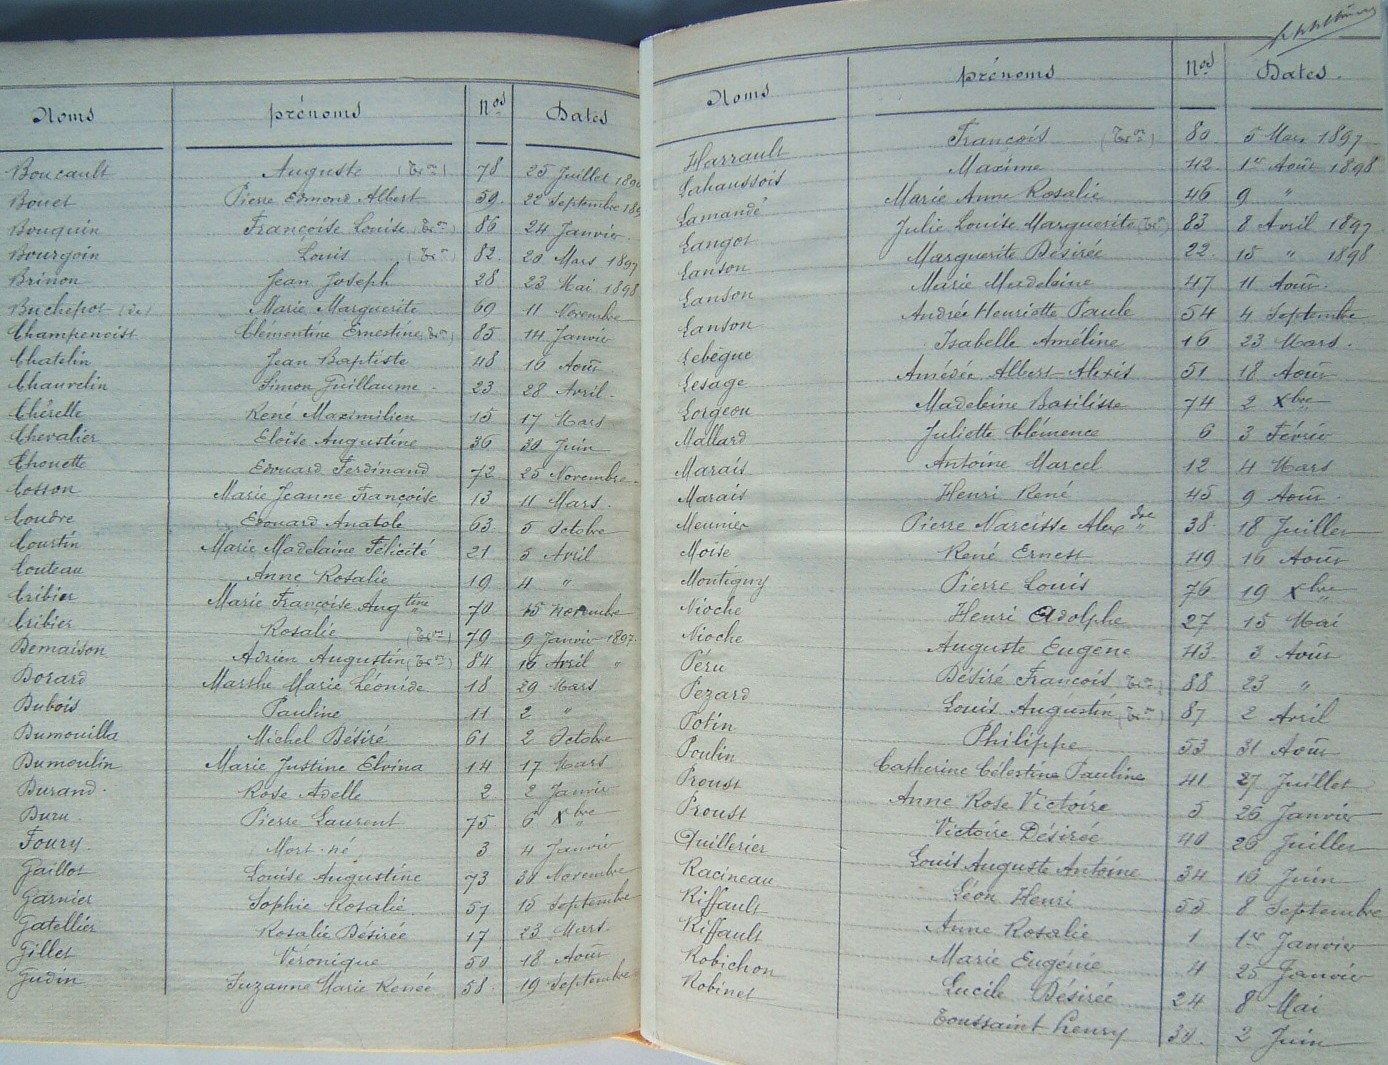 Noms prénoms Nos Dates
Boucault Auguste (Tron) 78 25 Juillet
Bouet Pierre Edmond Albert 59 22 Septembre
Bouquin Françoise Louise (Tron) 86 24 Janvier
Bourgoin Louis (Tron) 82 20 Mars 1897
Brinon Jean Joseph 28 23 Mai 1898
Buchepot (de) Marie Marguerite 69 11 Novembre
Champenoist Clémentine Ernestine (Tron) 85 14 Janvier
Chatelin Jean Baptiste 48 16 Août
Chauvelin Simon Guillaume 23 28 Avril
Chérelle René Maximilien 15 17 Mars
Chevalier Eloïse Augustine 36 30 Juin
Chouette Edouard Ferdinand 72 25 Novembre
Cosson Marie Jeanne Françoise 13 11 Mars
Coudre Edouard Anatole 63 5 Octobre
Courtin Marie Madelaine Félicité 21 5 Avril
Couteau Anne Rosalie 19 4 "
Cribier Marie Françoise Augtine 70 15 Novembre
Cribier Rosalie (Tron) 79 9 Janvier 1897
Demaison Adrien Augustin (Tron) 84 16 Avril "
Dorard Marthe Marie Léonide 18 29 Mars
Dubois Pauline 11 2 "
Dumouilla Michel Désiré 61 2 Octobre
Dumoulin Marie Justine Elvina 14 17 Mars
Durand Rose Adelle 2 2 Janvier
Duru Pierre Laurent 75 6 Xbre
Foury Mort-né 3 4 Janvier
Gaillot Louise Augustine 73 30 Novembre
Garnier Sophie Rosalie 57 15 Septembre
Gatellier Rosalie Désirée 17 23 Mars
Gillet Véronique 50 18 Août
Gudin Suzanne Marie Renée 58 19 Septembre
Noms prénoms Nos Dates
Harrault François (Tron) 80 5 Mars 1897
Lahaussois Maxime 42 1er Août 1898
Lamandé Marie Anne Rosalie 46 9 "
Langot Julie Louise Marguerite (Tron) 83 8 Avril 1897
Lanson Marguerite Désirée 22 15 " 1898
Lanson Marie Madeleine 47 11 Août
Lanson Andrée Henriette Paule 54 4 Septembre
Lebègue Isabelle Améline 16 23 Mars
Lesage Amédée Albert Alexis 51 18 Août
Lorgeou Madeleine Basilisse 74 2 Xbre
Mallard Juliette Clémence 6 3 Février
Marais Antoine Marcel 12 4 Mars
Marais Henri René 45 9 Août
Meunier Pierre Narcisse Alexdre 38 18 Juillet
Moïse René Ernest 49 16 Août
Montigny Pierre Louis 76 19 Xbre
Nioche Henri Adolphe 27 15 Mai
Nioche Auguste Eugène 43 3 Août
Péru Désiré François (Tron) 88 23 "
Pezard Louis Augustin (Tron) 87 2 Avril
Potin Philippe 53 31 Août
Poulin Catherine Célestine Pauline 41 27 Juillet
Proust Anne Rose Victoire 5 26 Janvier
Proust Victoire Désirée 40 26 Juillet
Quillerier Louis Auguste Antoine 34 16 Juin
Racineau Léon Henri 55 8 Septembre
Riffault Anne Rosalie 1 1er Janvier
Riffault Marie Eugénie 4 25 Janvier
Robichon Lucile Désirée 24 8 Mai
Robinet Toussaint Henry 30 2 Juin